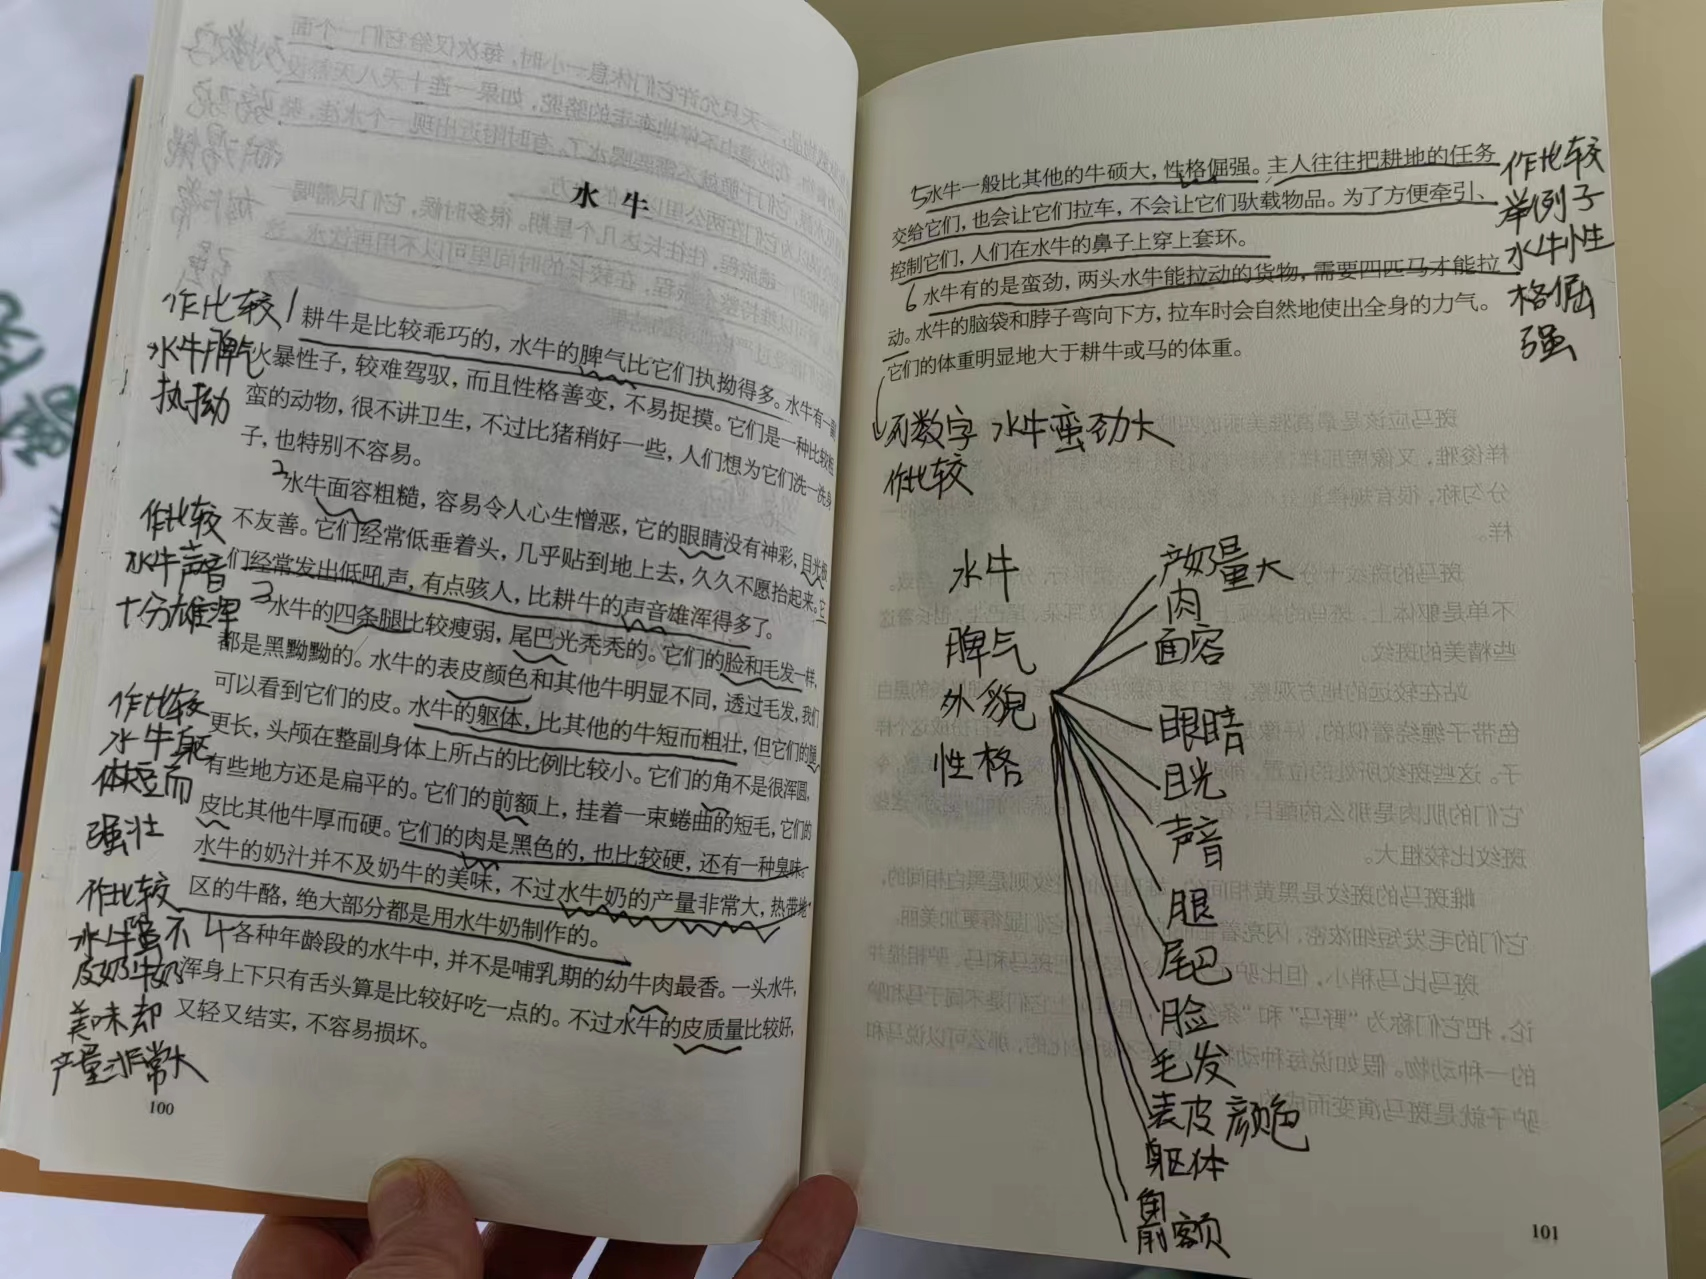 水牛
作比较
水牛脾气
执拗
1 耕牛是比较乖巧的，水牛的脾气比它们执拗得多。水牛有一副
火暴性子，较难驾驭，而且性格善变，不易捉摸。它们是一种比较粗
蛮的动物，很不讲卫生，不过比猪稍好一些，人们想为它们洗一洗身
子，也特别不容易。
2水牛面容粗糙，容易令人心生憎恶，它的眼睛没有神彩，目光极
不友善。它们经常低垂着头，几乎贴到地上去，久久不愿抬起来。它
们经常发出低吼声，有点骇人，比耕牛的声音雄浑得多了。
作比较
水牛声音
十分雄浑
3水牛的四条腿比较瘦弱，尾巴光秃秃的。它们的脸和毛发一样，
都是黑黝黝的。水牛的表皮颜色和其他牛明显不同，透过毛发，我们
可以看到它们的皮。水牛的躯体，比其他的牛短而粗壮，但它们的腿
更长，头颅在整副身体上所占的比例比较小。它们的角不是很浑圆，
有些地方还是扁平的。它们的前额上，挂着一束蜷曲的短毛，它们的
皮比其他牛厚而硬。它们的肉是黑色的，也比较硬，还有一种臭味。
水牛的奶汁并不及奶牛的美味，不过水牛奶的产量非常大，热带地
区的牛酪，绝大部分都是用水牛奶制作的。
作比较
水牛躯
体短而
强壮
作比较
水牛虽不
及奶牛奶
美味却
产量非常大
4各种年龄段的水牛中，并不是哺乳期的幼牛肉最香。一头水牛，
浑身上下只有舌头算是比较好吃一点的。不过水牛的皮质量比较好，
又轻又结实，不容易损坏。
100
5水牛一般比其他的牛硕大，性格倔强。主人往往把耕地的任务
交给它们，也会让它们拉车，不会让它们驮载物品。为了方便牵引、
控制它们，人们在水牛的鼻子上穿上套环。
6水牛有的是蛮劲，两头水牛能拉动的货物，需要四匹马才能拉
动。水牛的脑袋和脖子弯向下方，拉车时会自然地使出全身的力气。
它们的体重明显地大于耕牛或马的体重。
作比较
举例子
水牛性
格倔
强
列数字 水牛蛮劲大
作比较
水牛
脾气
外貌
性格
产奶量大
肉
面容
眼睛
目光
声音
腿
尾巴
脸
毛发
表皮颜色
躯体
角
前额
101